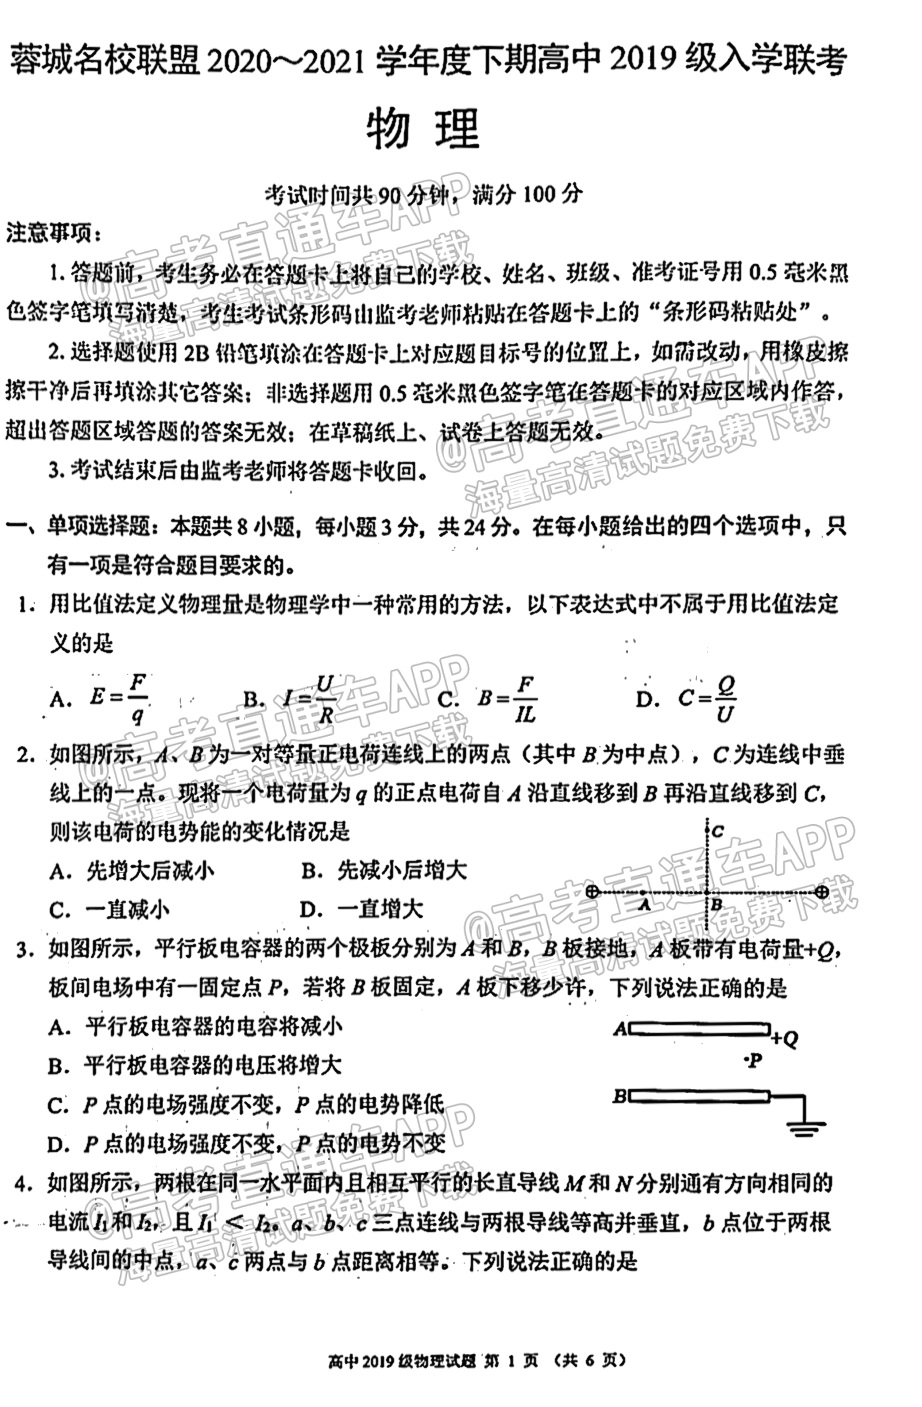 蓉城名校联盟2020～2021学年度下期高中2019级入学联考
物 理
考试时间共90分钟，满分100分
注意事项：
1.答题前，考生务必在答题卡上将自己的学校、姓名、班级、准考证号用0.5毫米黑
色签字笔填写清楚，考生考试条形码由监考老师粘贴在答题卡上的“条形码粘贴处”。
2.选择题使用2B铅笔填涂在答题卡上对应题目标号的位置上，如需改动，用橡皮擦
擦干净后再填涂其它答案；非选择题用0.5毫米黑色签字笔在答题卡的对应区域内作答，
超出答题区域答题的答案无效；在草稿纸上、试卷上答题无效。
3.考试结束后由监考老师将答题卡收回。
一、单项选择题：本题共8小题，每小题3分，共24分。在每小题给出的四个选项中，只
有一项是符合题目要求的。
1. 用比值法定义物理量是物理学中一种常用的方法，以下表达式中不属于用比值法定
义的是
A. E=F/q B. I=U/R C. B=F/IL D. C=Q/U
2. 如图所示，A、B为一对等量正电荷连线上的两点（其中B为中点），C为连线中垂
线上的一点。现将一个电荷量为q的正点电荷自A沿直线移到B再沿直线移到C，
则该电荷的电势能的变化情况是
A. 先增大后减小 B. 先减小后增大
C. 一直减小 D. 一直增大
C
A B
3. 如图所示，平行板电容器的两个极板分别为A和B，B板接地，A板带有电荷量+Q，
板间电场中有一固定点P，若将B板固定，A板下移少许，下列说法正确的是
A. 平行板电容器的电容将减小
B. 平行板电容器的电压将增大
C. P点的电场强度不变，P点的电势降低
D. P点的电场强度不变，P点的电势不变
A +Q
·P
B
4. 如图所示，两根在同一水平面内且相互平行的长直导线M和N分别通有方向相同的
电流I₁和I₂，且I₁＜I₂。a、b、c三点连线与两根导线等高并垂直，b点位于两根
导线间的中点，a、c两点与b点距离相等。下列说法正确的是
高中2019级物理试题 第 1 页 （共 6 页）
@高考直通车APP
海量高清试题免费下载
@高考直通车APP
海量高清试题免费下载
@高考直通车APP
海量高清试题免费下载
@高考直通车APP
海量高清试题免费下载
@高考直通车APP
海量高清试题免费下载